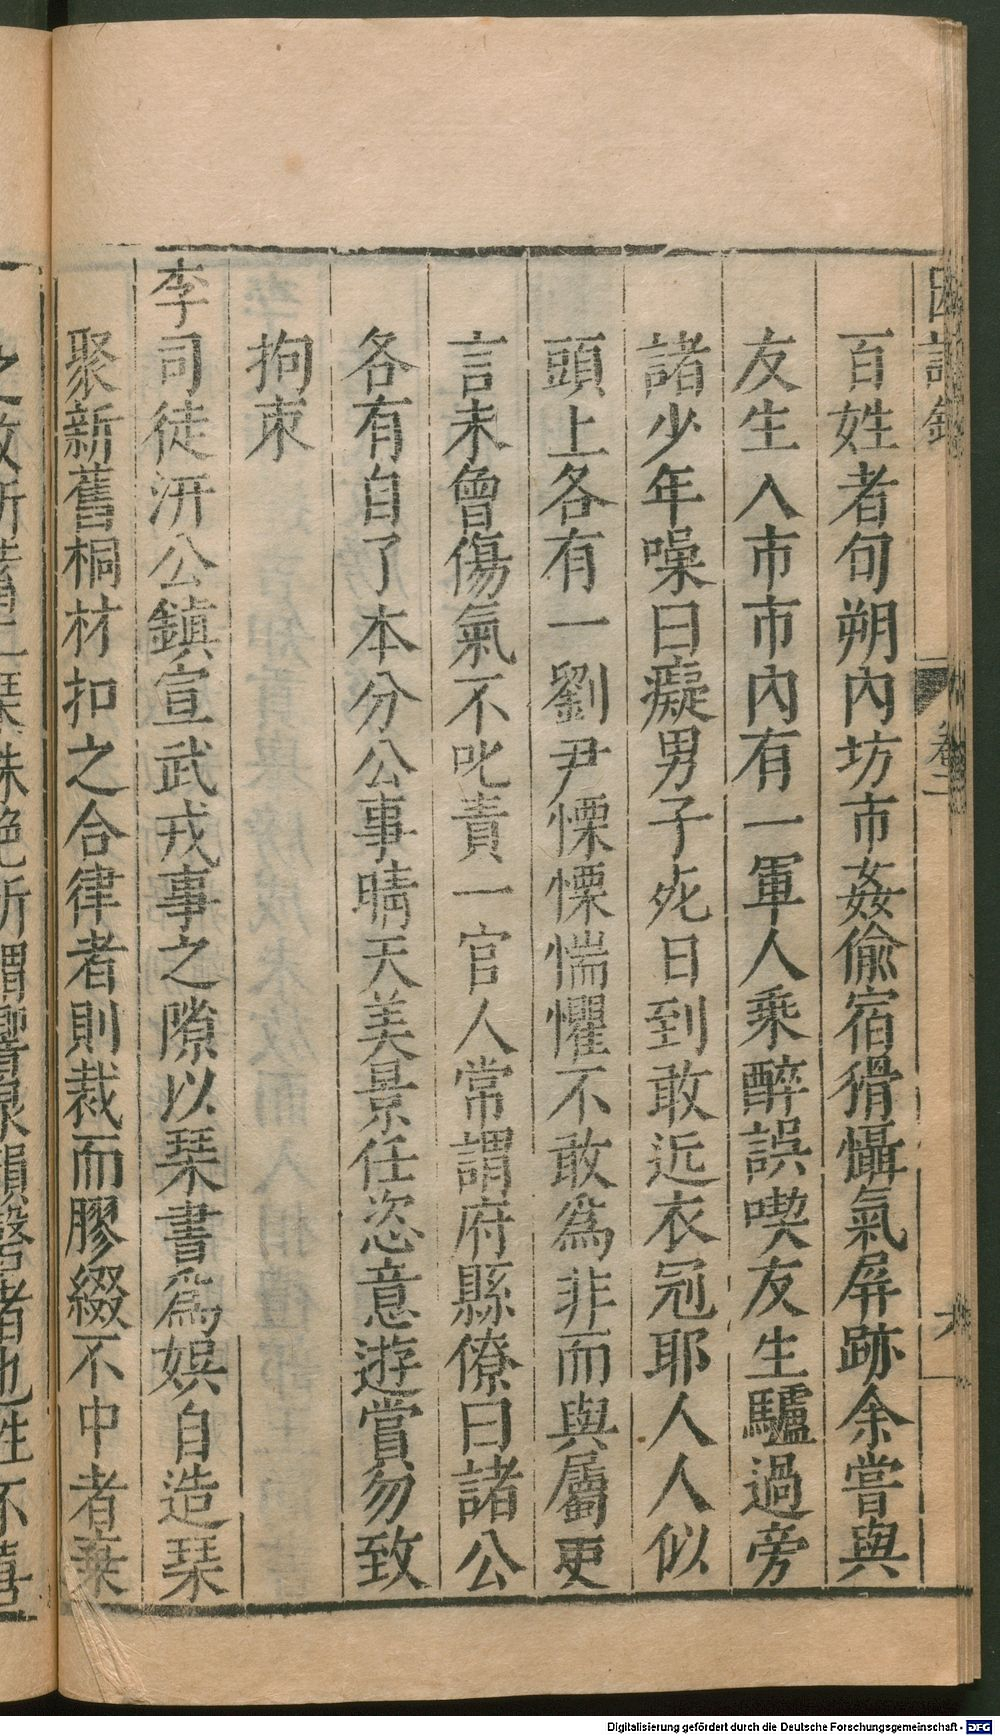 因話錄 卷二
百姓者句朔內坊市姦偷宿猾懾氣屏跡余嘗與
友生入市市內有一軍人乘醉誤喫友生驢過旁
諸少年噪曰癡男子死日到敢近衣冠耶人人似
頭上各有一劉尹慄慄惴懼不敢爲非而與屬吏
言未曾傷氣不叱責一官人常謂府縣僚曰諸公
各有自了本分公事晴天美景任恣意遊賞勿致
拘束
李司徒汧公鎮宣武戎事之隙以琹書爲娛自造琹
聚新舊桐材扣之合律者則裁而膠綴不中者棄
Digitalisierung gefördert durch die Deutsche Forschungsgemeinschaft - DFG